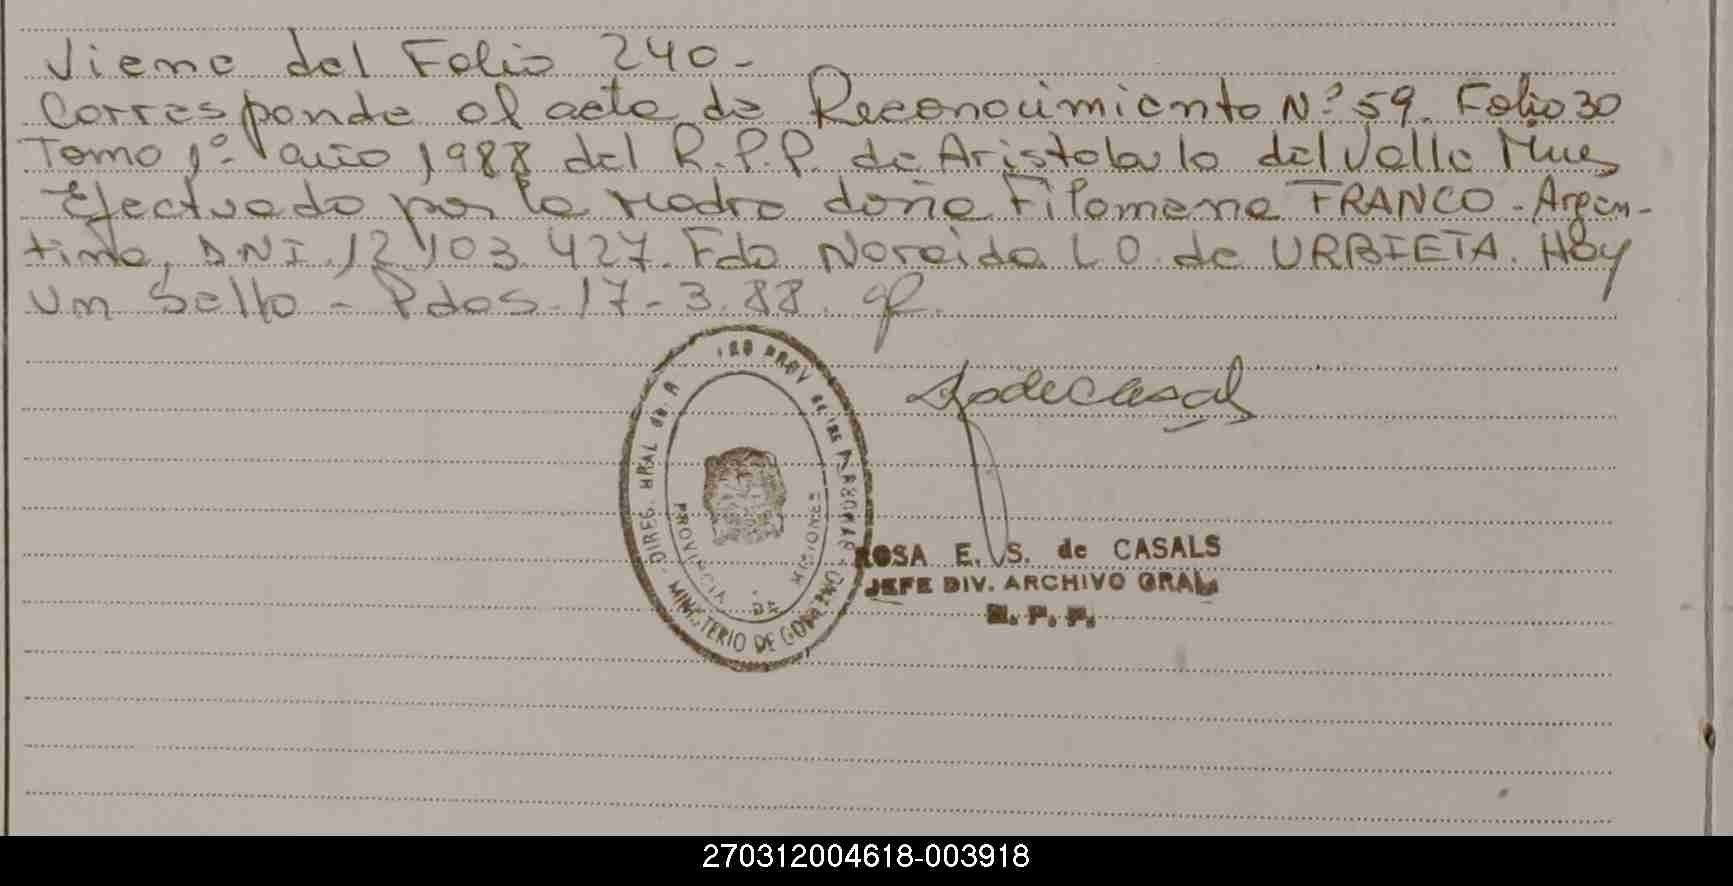 Viene del Folio 240-
Corresponde al acta de Reconocimiento Nº 59. Folio 30
Tomo 1º año 1988 del R.P.P. de Aristobulo del Valle Mnes
Efectuado por la madre doña Filomena FRANCO - Argen-
tina, DNI 12.103.427. Fdo Noreida L O. de URBIETA. Hay
un Sello - Pdas. 17-3.88.
ROSA E. S. de CASALS
JEFE DIV. ARCHIVO GRAL
R. P. P.
PROV DE LAS PERSONAS
MINISTERIO DE GOBIERNO
PROVINCIA DE MISIONES
270312004618-003918